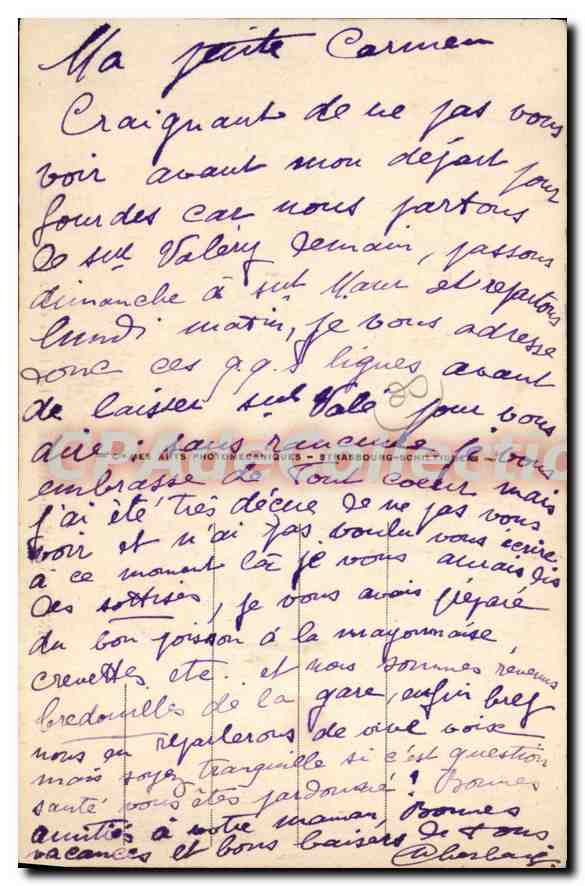 Ma petite Carmen
Craignant de ne pas vous
voir avant mon départ pour
Lourdes car nous partons
de St Valéry demain, passons
dimanche à St Maur et repartons
lundi matin, je vous adresse
donc ces q.q.s lignes avant
de laisser St Vale pour vous
dire sans rancune je vous
CIE DES ARTS PHOTOMECANIQUES - STRASBOURG-SCHILTIGHEIM
embrasse de tout coeur mais
j'ai été très déçue de ne pas vous
voir et n'ai pas voulu vous écrire
à ce moment là je vous aurais dis
des sottises, je vous avais préparé
du bon poisson à la mayonnaise,
crevettes etc. et nous sommes revenus
bredouilles de la gare, enfin bref
nous en reparlerons de vive voix
mais soyez tranquille si c'est question
santé vous êtes pardonné! Bonnes
amitiés à votre maman, Bonnes
vacances et bons baisers de tous
80
CPA de Collection